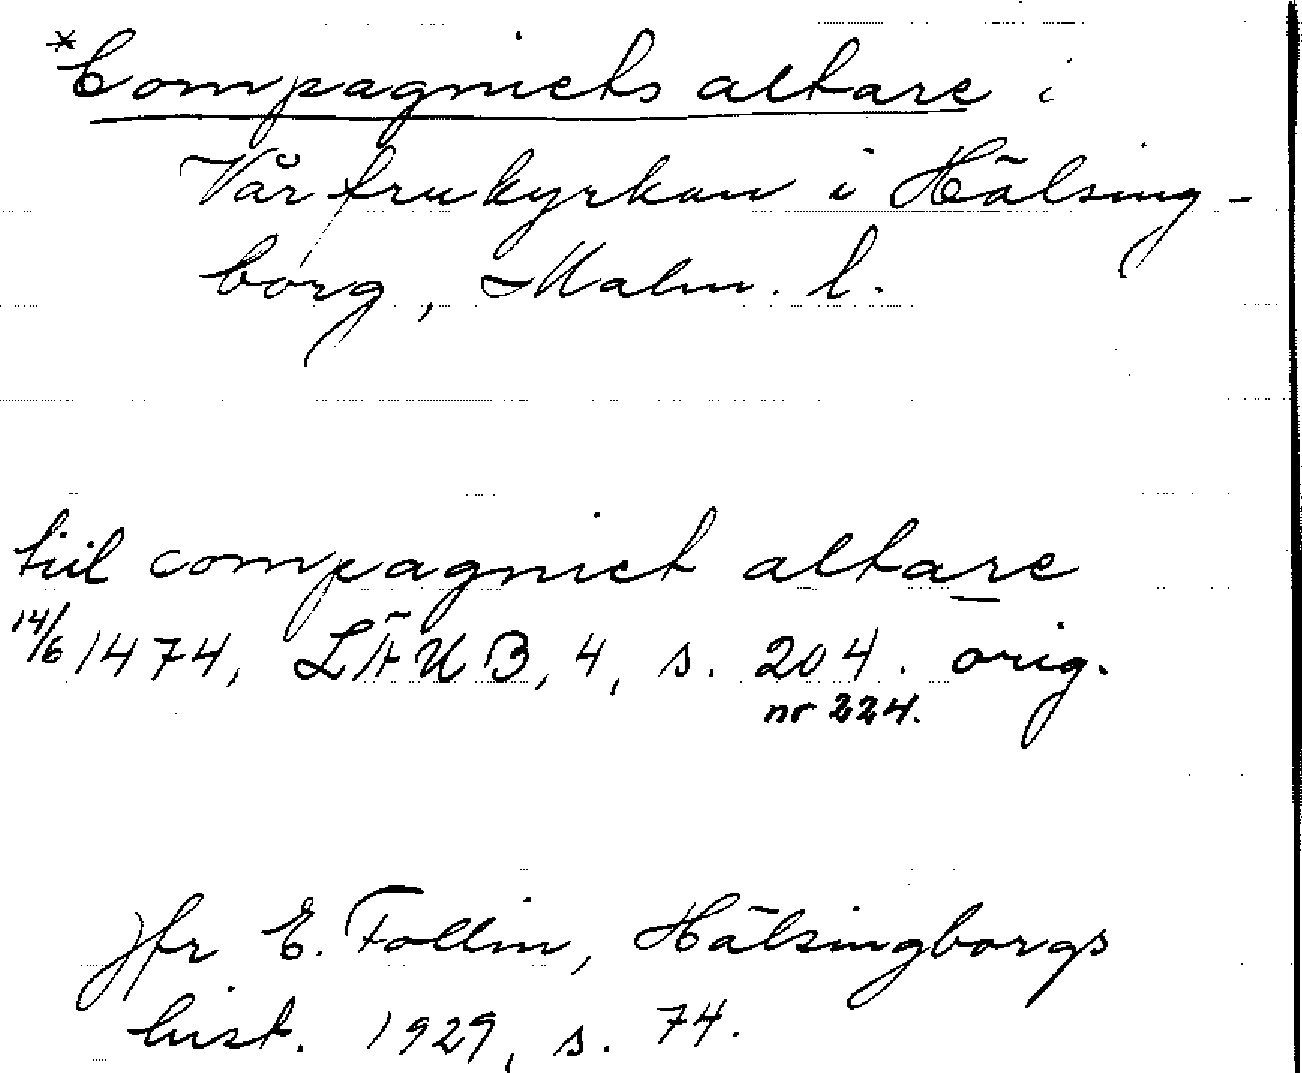 *Compagniets altare i
Vår frukyrkan i Hälsing-
borg, Malm. l.
tiil compagniet altare
14/6 1474, LÄUB, 4, s. 204. orig.
nr 224.
Jfr E. Follin, Hälsingborgs
hist. 1929, s. 74.